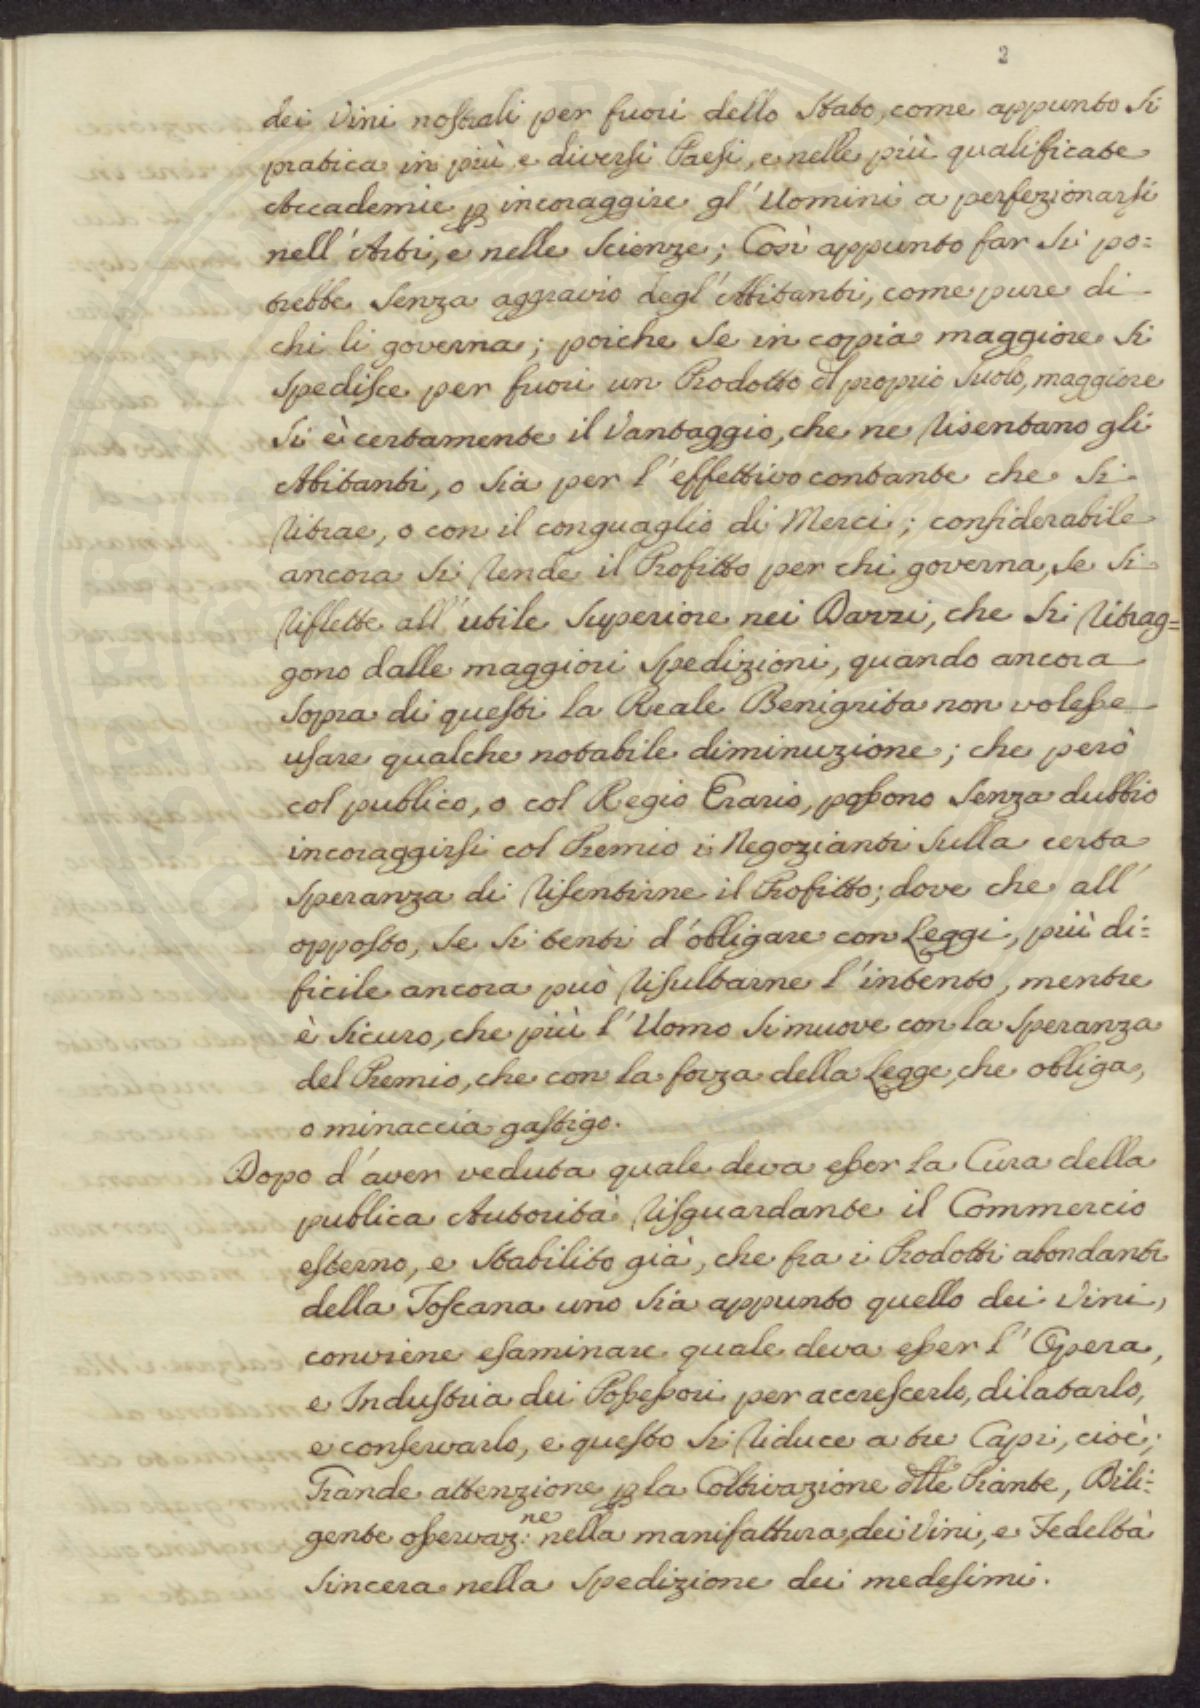 2
dei Vini nostrali per fuori dello Stato, come appunto si
pratica in più, e diversi Paesi, e nelle più qualificate
Accademie p incoraggire gl' Uomini a perfezionarsi
nell' Arti, e nelle Scienze; Così appunto far si po=
trebbe senza aggravio degl' Abitanti, come pure di
chi li governa; poiche se in copia maggiore si
spedisce per fuori un Prodotto dl proprio suolo, maggiore
si è certamente il Vantaggio, che ne risentano gli
Abitanti, o sia per l' effettivo contante che si
ritrae, o con il conguaglio di Merci; considerabile
ancora si rende il Profitto per chi governa, se si
riflette all' utile superiore nei Dazzi, che si ritrag=
gono dalle maggiori spedizioni, quando ancora
sopra di questi la Reale Benignita non volesse
usare qualche notabile diminuzione; che però
col publico, o col Regio Erario, possono senza dubbio
incoraggirsi col Premio i Negozianti sulla certa
speranza di risentirne il Profitto; dove che all'
opposto, se si tenti d' obligare con Leggi, più di=
ficile ancora può risultarne l' intento, mentre
è sicuro, che più l' Uomo si muove con la speranza
del Premio, che con la forza della Legge, che obliga,
o minaccia gastigo.
Dopo d' aver veduta quale deva esser la Cura della
publica Autorità risguardante il Commercio
esterno, e stabilito già, che fra i Prodotti abondanti
della Toscana uno sia appunto quello dei Vini,
conviene esaminare quale deva esser l' Opera,
e Industria dei Possessori per accrescerlo, dilatarlo,
e conservarlo, e questo si riduce a tre Capi, cioè;
Grande attenzione p la Coltivazione dlle Piante, Dili=
gente osservaz:ne nella manifattura dei Vini, e Fedeltà
sincera nella spedizione dei medesimi.